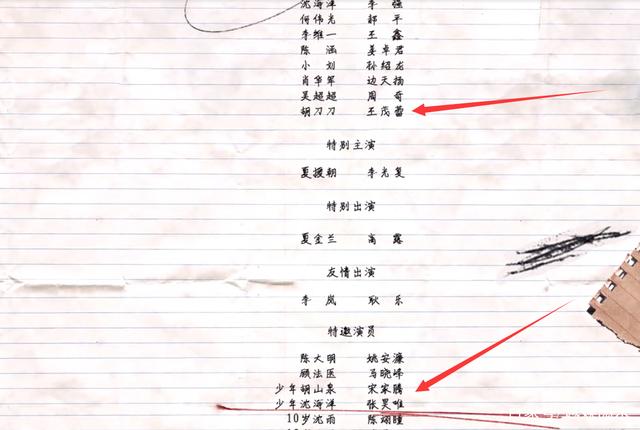 沈海洋 李强
何伟光 郝平
李维一 王鑫
陈涵 姜卓君
小刘 孙绍龙
肖华军 边天扬
吴超超 周奇
胡刀刀 王茂蕾
特别主演
夏援朝 李光复
特别出演
夏金兰 高露
友情出演
李岚 耿乐
特邀演员
陈大明 姚安濂
顾法医 马晓峰
少年胡山泉 宋家腾
少年沈海洋 张昊唯
10岁沈雨 陈翊曈